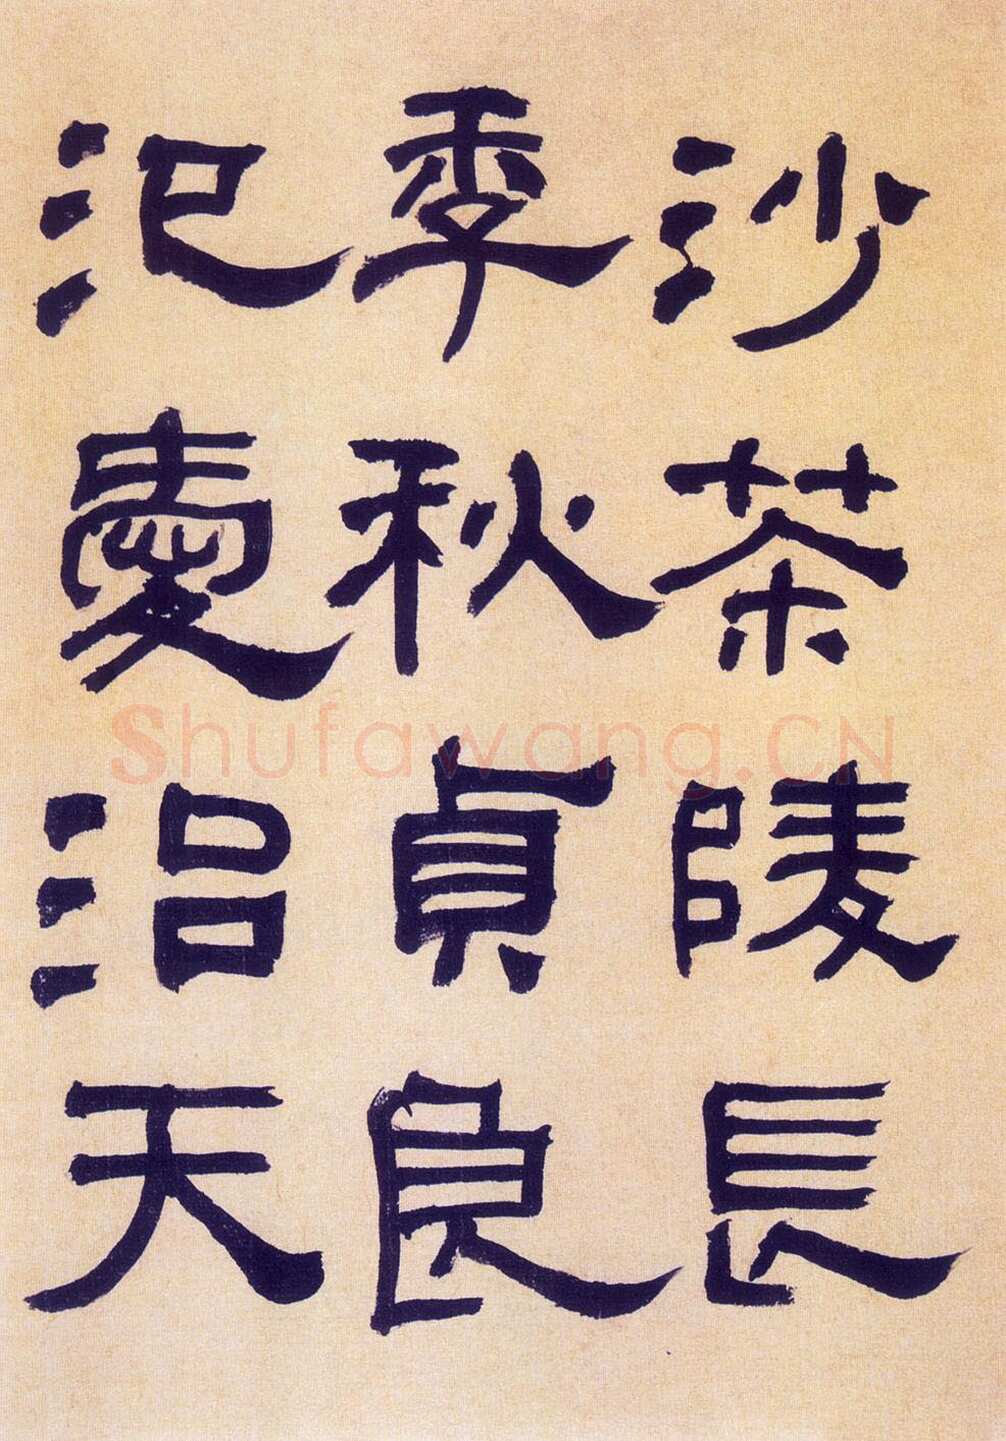 沙茶陵長
季秋貞良
汜愛治天
Shufawang.CN